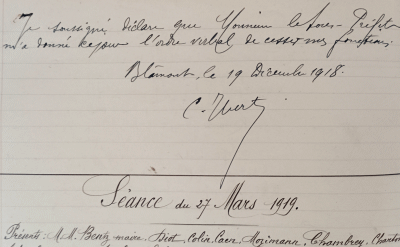 Je soussigné, déclare que Monsieur le Sous-Préfet
m'a donné ce jour l'ordre verbal de cesser mes fonctions.
Blâmont, le 19 Décembre 1918.
C. Huert
Séance du 27 Mars 1919.
Présents: M.M. Bentz maire, Diot, Colin, Caen, Mozimann, Chambrey,